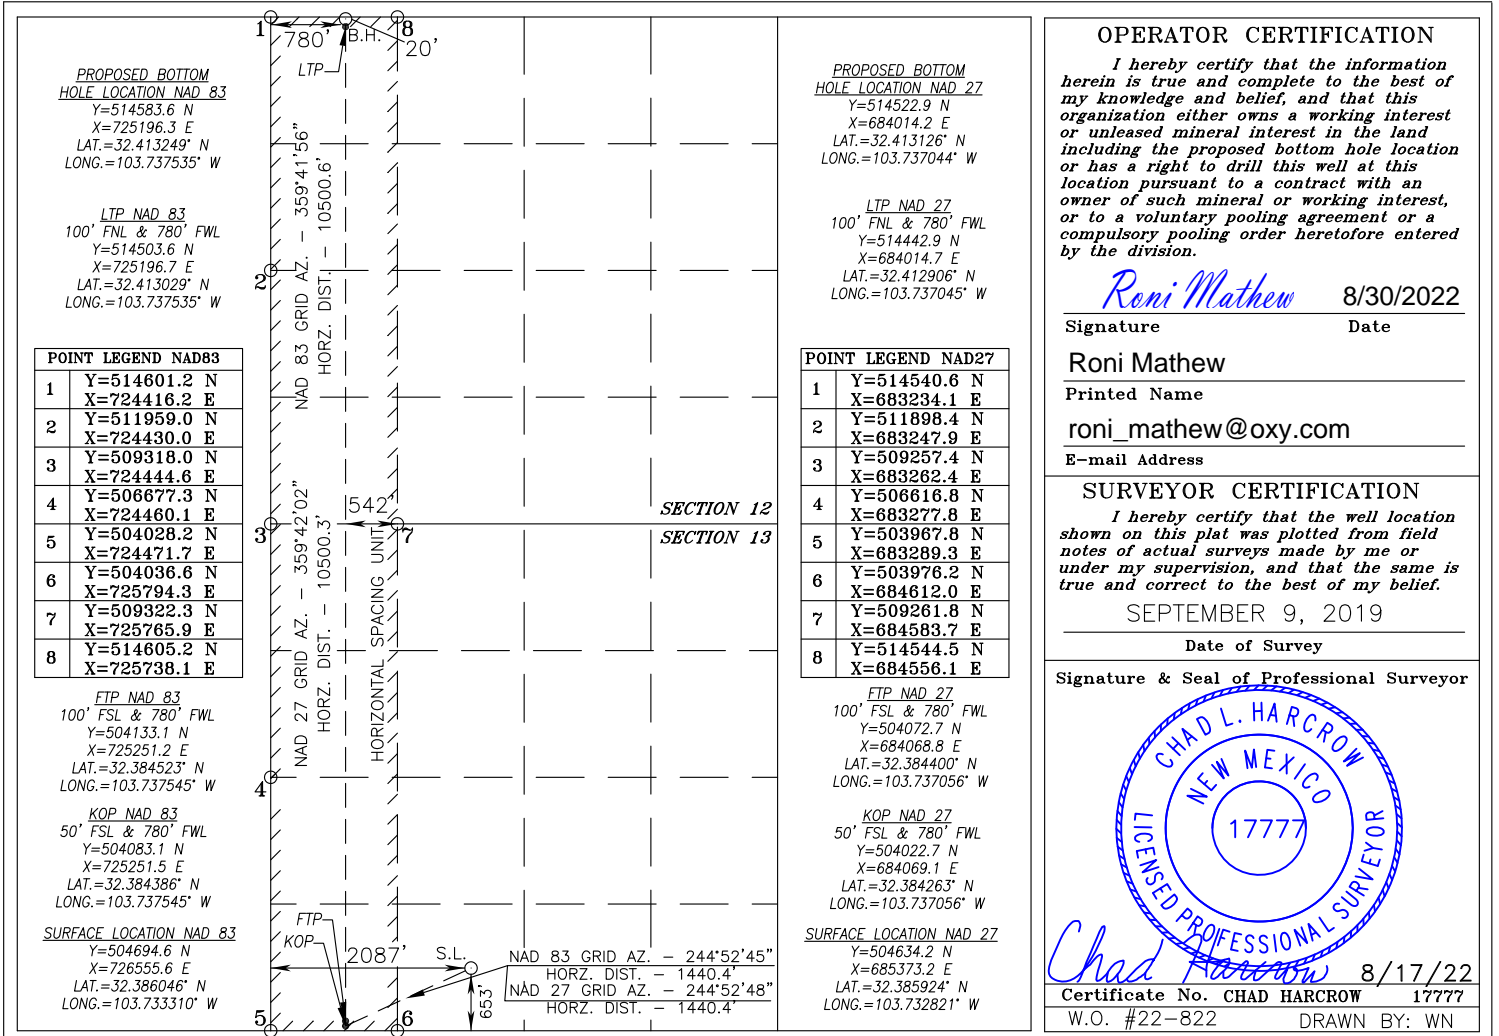 1
780'
B.H.
8
20'
LTP
PROPOSED BOTTOM
HOLE LOCATION NAD 83
Y=514583.6 N
X=725196.3 E
LAT.=32.413249° N
LONG.=103.737535° W
LTP NAD 83
100' FNL & 780' FWL
Y=514503.6 N
X=725196.7 E
LAT.=32.413029° N
LONG.=103.737535° W
POINT LEGEND NAD83
1 Y=514601.2 N
X=724416.2 E
2 Y=511959.0 N
X=724430.0 E
3 Y=509318.0 N
X=724444.6 E
4 Y=506677.3 N
X=724460.1 E
5 Y=504028.2 N
X=724471.7 E
6 Y=504036.6 N
X=725794.3 E
7 Y=509322.3 N
X=725765.9 E
8 Y=514605.2 N
X=725738.1 E
FTP NAD 83
100' FSL & 780' FWL
Y=504133.1 N
X=725251.2 E
LAT.=32.384523° N
LONG.=103.737545° W
KOP NAD 83
50' FSL & 780' FWL
Y=504083.1 N
X=725251.5 E
LAT.=32.384386° N
LONG.=103.737545° W
SURFACE LOCATION NAD 83
Y=504694.6 N
X=726555.6 E
LAT.=32.386046° N
LONG.=103.733310° W
NAD 83 GRID AZ. – 359°41'56"
HORZ. DIST. – 10500.6'
2
3
542'
7
SECTION 12
SECTION 13
NAD 27 GRID AZ. – 359°42'02"
HORZ. DIST. – 10500.3'
HORIZONTAL SPACING UNIT
4
FTP
KOP
2087'
S.L.
653'
NAD 83 GRID AZ. – 244°52'45"
HORZ. DIST. – 1440.4'
NAD 27 GRID AZ. – 244°52'48"
HORZ. DIST. – 1440.4'
5
6
PROPOSED BOTTOM
HOLE LOCATION NAD 27
Y=514522.9 N
X=684014.2 E
LAT.=32.413126° N
LONG.=103.737044° W
LTP NAD 27
100' FNL & 780' FWL
Y=514442.9 N
X=684014.7 E
LAT.=32.412906° N
LONG.=103.737045° W
POINT LEGEND NAD27
1 Y=514540.6 N
X=683234.1 E
2 Y=511898.4 N
X=683247.9 E
3 Y=509257.4 N
X=683262.4 E
4 Y=506616.8 N
X=683277.8 E
5 Y=503967.8 N
X=683289.3 E
6 Y=503976.2 N
X=684612.0 E
7 Y=509261.8 N
X=684583.7 E
8 Y=514544.5 N
X=684556.1 E
FTP NAD 27
100' FSL & 780' FWL
Y=504072.7 N
X=684068.8 E
LAT.=32.384400° N
LONG.=103.737056° W
KOP NAD 27
50' FSL & 780' FWL
Y=504022.7 N
X=684069.1 E
LAT.=32.384263° N
LONG.=103.737056° W
SURFACE LOCATION NAD 27
Y=504634.2 N
X=685373.2 E
LAT.=32.385924° N
LONG.=103.732821° W
OPERATOR CERTIFICATION
I hereby certify that the information
herein is true and complete to the best of
my knowledge and belief, and that this
organization either owns a working interest
or unleased mineral interest in the land
including the proposed bottom hole location
or has a right to drill this well at this
location pursuant to a contract with an
owner of such mineral or working interest,
or to a voluntary pooling agreement or a
compulsory pooling order heretofore entered
by the division.
Roni Mathew 8/30/2022
Signature Date
Roni Mathew
Printed Name
roni_mathew@oxy.com
E-mail Address
SURVEYOR CERTIFICATION
I hereby certify that the well location
shown on this plat was plotted from field
notes of actual surveys made by me or
under my supervision, and that the same is
true and correct to the best of my belief.
SEPTEMBER 9, 2019
Date of Survey
Signature & Seal of Professional Surveyor
CHAD L. HARCROW
NEW MEXICO
17777
LICENSED PROFESSIONAL SURVEYOR
Chad Harcrow 8/17/22
Certificate No. CHAD HARCROW 17777
W.O. #22-822 DRAWN BY: WN